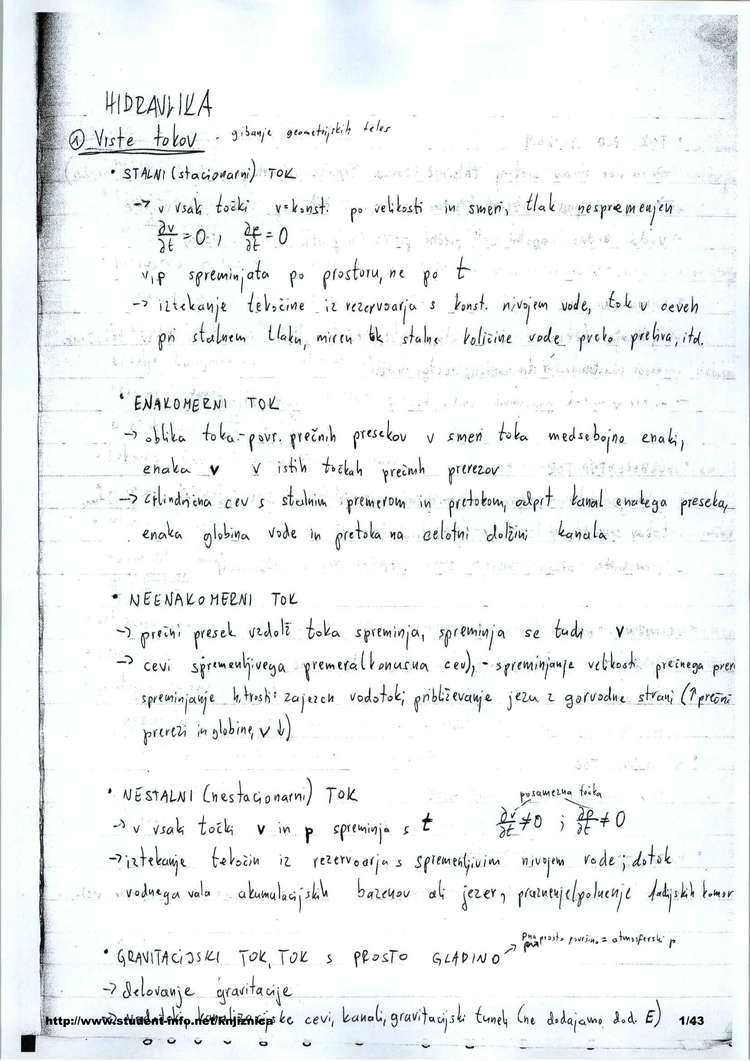 HIDRAVLIKA
① Vrste tokov - gibanje geometrijskih teles
• STALNI (stacionarni) TOK
→ v vsaki točki v=konst. po velikosti in smeri, tlak nespremenjen
∂v/∂t = 0, ∂p/∂t = 0
v,p spreminjata po prostoru, ne po t
→ iztekanje tekočine iz rezervoarja s konst. nivojem vode, tok v ceveh
pri stalnem tlaku, miren tok stalne količine vode preko preliva, itd.
• ENAKOMERNI TOK
→ oblika toka - povr. prečnih presekov v smeri toka medsebojno enaki,
enaka v v istih točkah prečnih prerezov
→ cilindrična cev s stalnim premerom in pretokom, odprt kanal enakega preseka,
enaka globina vode in pretoka na celotni dolžini kanala
• NEENAKOMERNI TOK
→ prečni presek vzdolž toka spreminja, spreminja se tudi v
→ cevi spremenljivega premera (konusna cev), - spreminjanje velikosti prečnega prer
spreminjanje hitrosti: zajezen vodotok, približevanje jezu z gorvodne strani (↑ prečni
prerezi in globine, v ↓)
• NESTALNI (nestacionarni) TOK
posamezna točka
→ v vsaki točki v in p spreminja s t ∂v/∂t ≠ 0 ; ∂p/∂t ≠ 0
→ iztekanje tekočin iz rezervoarja s spremenljivim nivojem vode; dotok
vodnega vala akumulacijskih bazenov ali jezer, praznenje/polnenje ladijskih komor
• GRAVITACIJSKI TOK, TOK S PROSTO GLADINO → p na prosto površino = atmosferski p
→ delovanje gravitacije
→ cevi, kanali, gravitacijski tuneli (ne dodajamo dod. E)
http://www.student-info.net/knjiznica 1/43